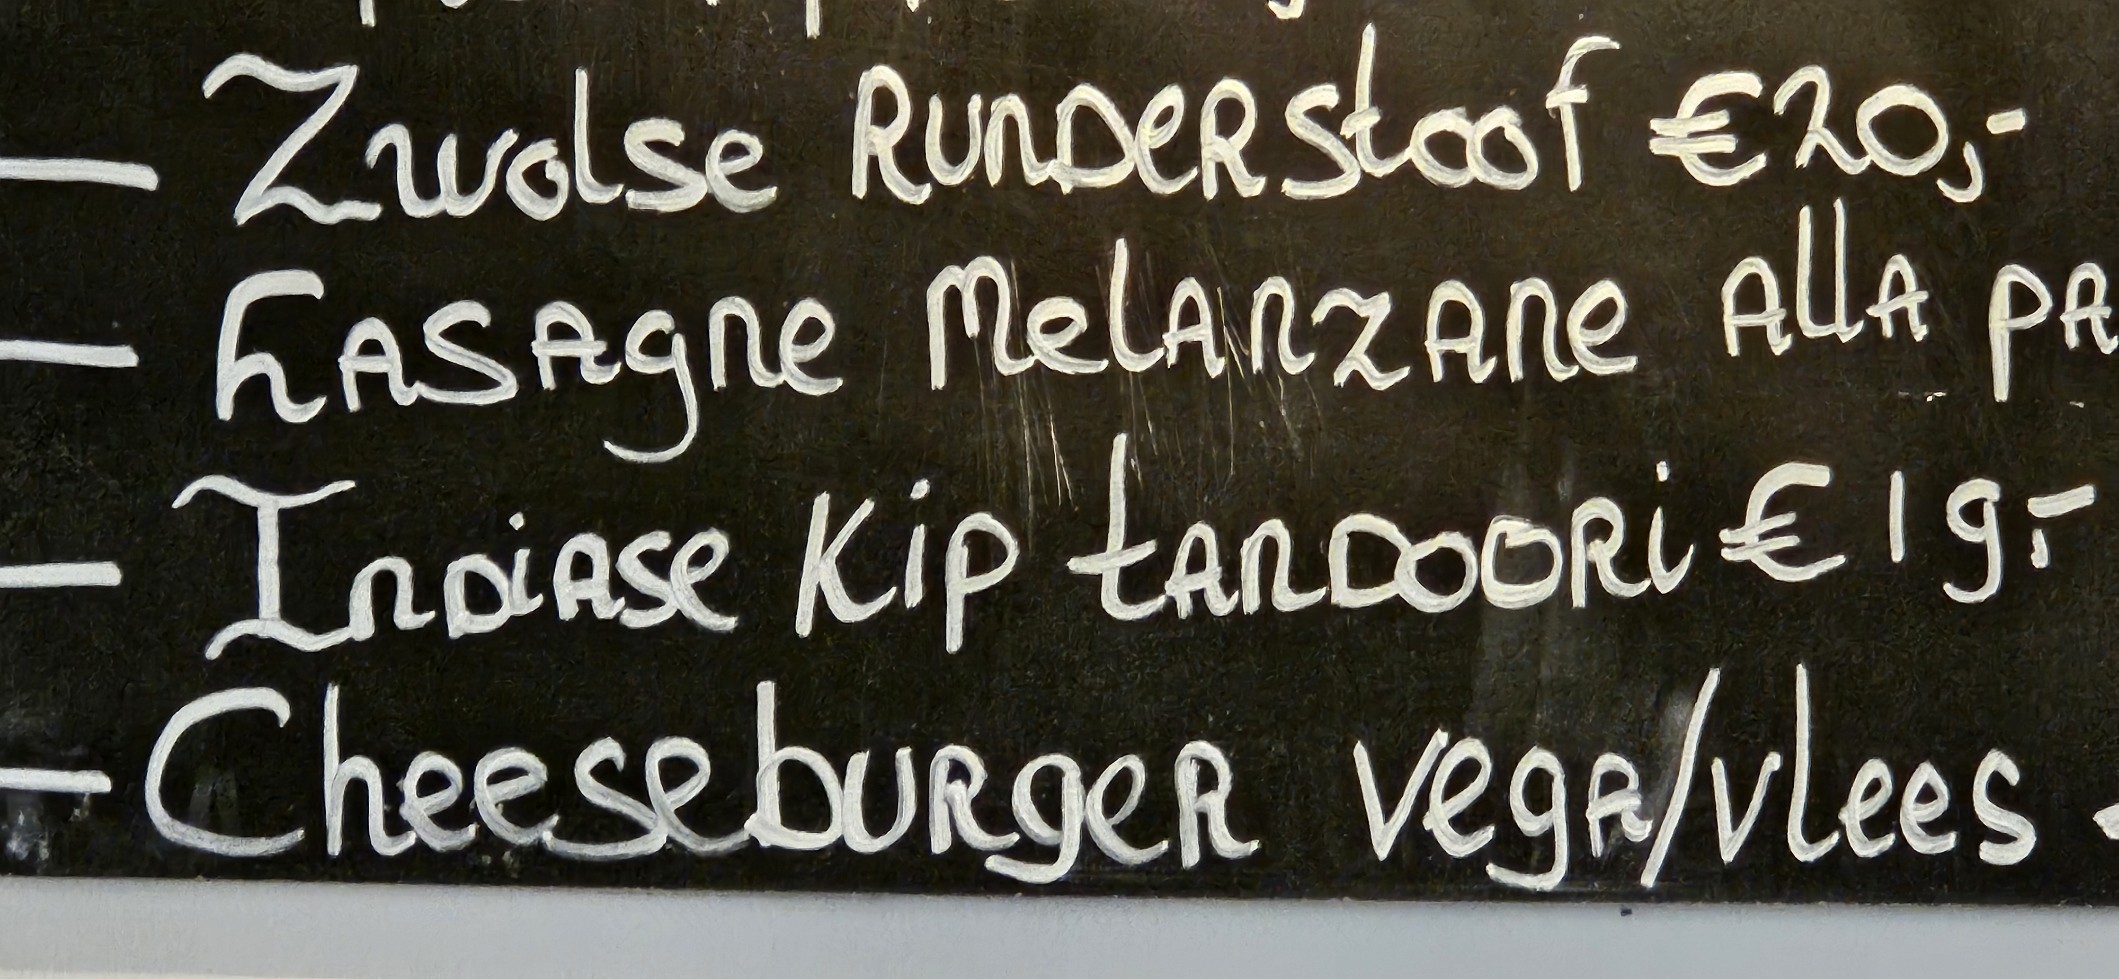 - Zwolse Runderstoof €20,-
- Lasagne Melanzane alla pa
- Indiase Kip tandoori € 19,-
- Cheeseburger vega/vlees